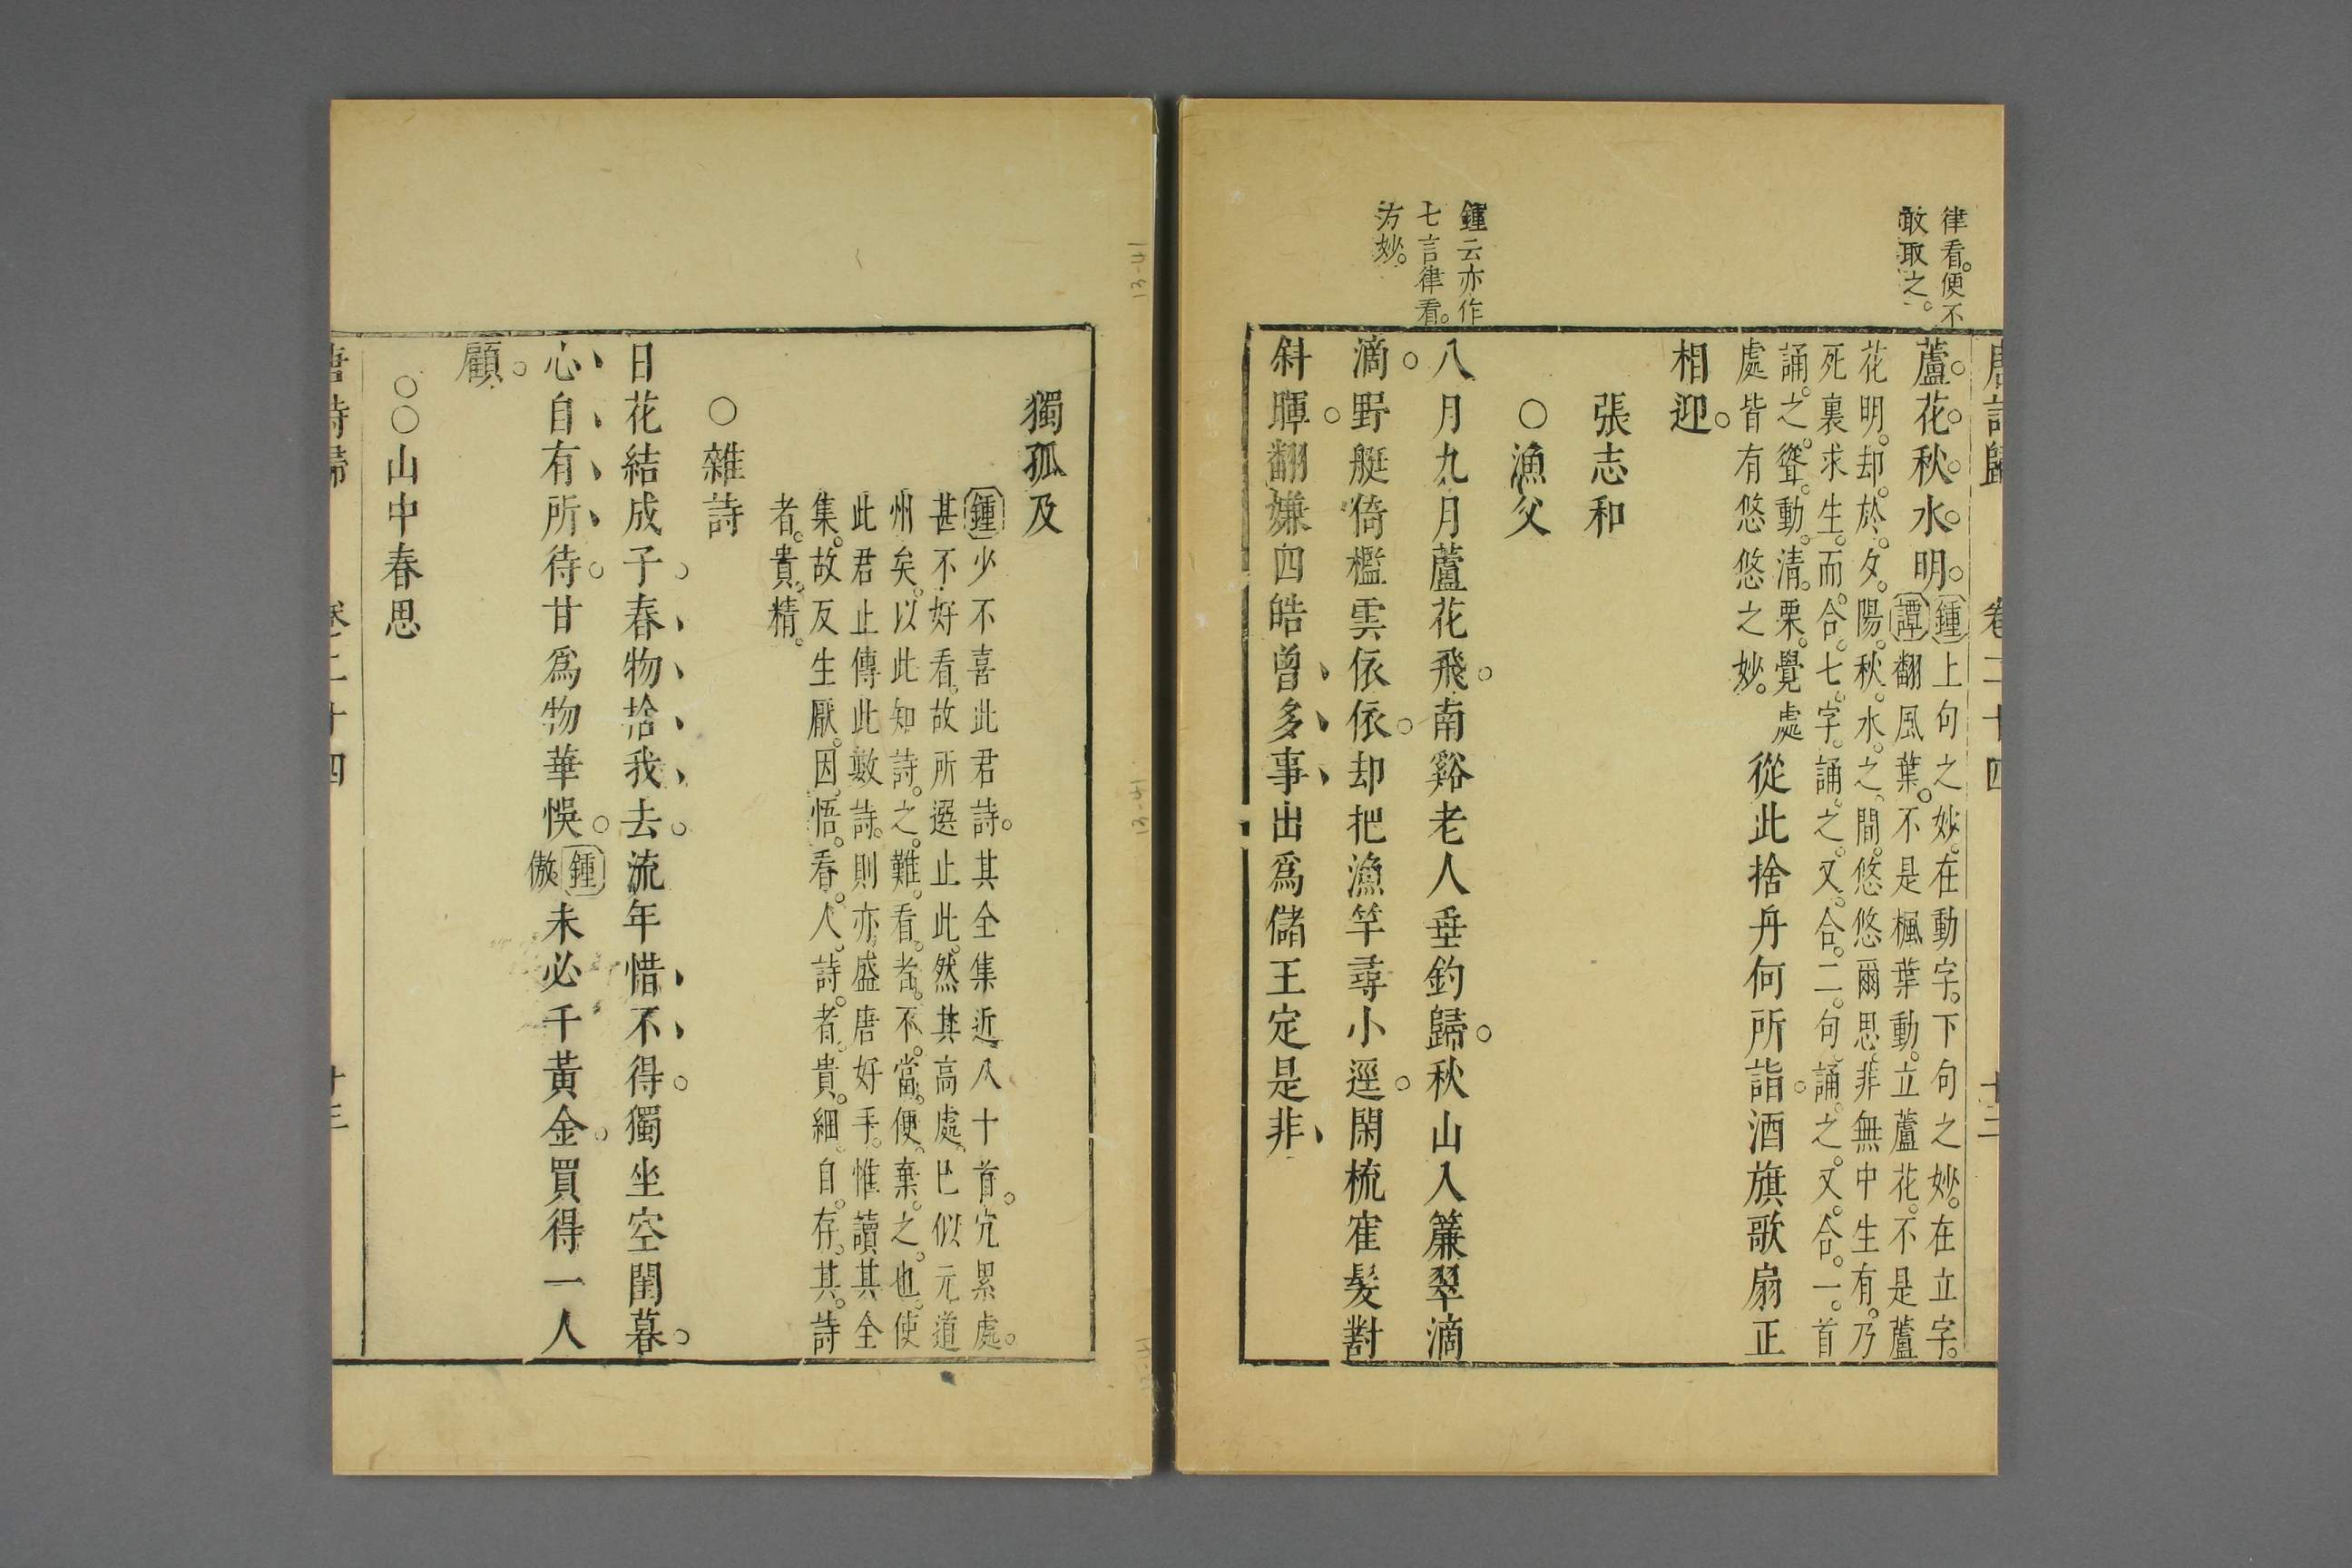 律看。便不
敢取之。
鍾云亦作
七言律看。
方妙。
唐詩歸 卷二十四 十三
蘆花秋水明。鍾上句之妙。在動字。下句之妙。在立字。
譚翻風葉。不是楓葉動。立蘆花。不是蘆
花明。却於夕陽秋水之間。悠悠爾思。非無中生有。乃
死裏求生。而合七字誦之。又合二句誦之。又合一首
誦之。聳動清栗。覺處
處皆有悠悠之妙。從此捨舟何所詣。酒旗歌扇正
相迎。
張志和
○漁父
八月九月蘆花飛。南谿老人垂釣歸。秋山入簾翠滴
滴。野艇倚檻雲依依。却把漁竿尋小逕。閑梳雀髮對
斜暉。翻嫌四皓曾多事。出爲儲王定是非
獨孤及
鍾少不喜此君詩。其全集近八十首。宂累處。
甚不好看。故所選止此。然其高處。已似元道
州矣。以此知詩之難看者。不當便棄之也。使
此君止傳此數詩。則亦盛唐好手。惟讀其全
集。故反生厭。因悟看人詩者。貴細。自存其詩
者。貴精。
○雜詩
日花結成子。春物捨我去。流年惜不得。獨坐空閨暮。
心自有所待。甘爲物華悞。鍾傲未必千黃金。買得一人
顧。
○○山中春思
唐詩歸 卷二十四 十三